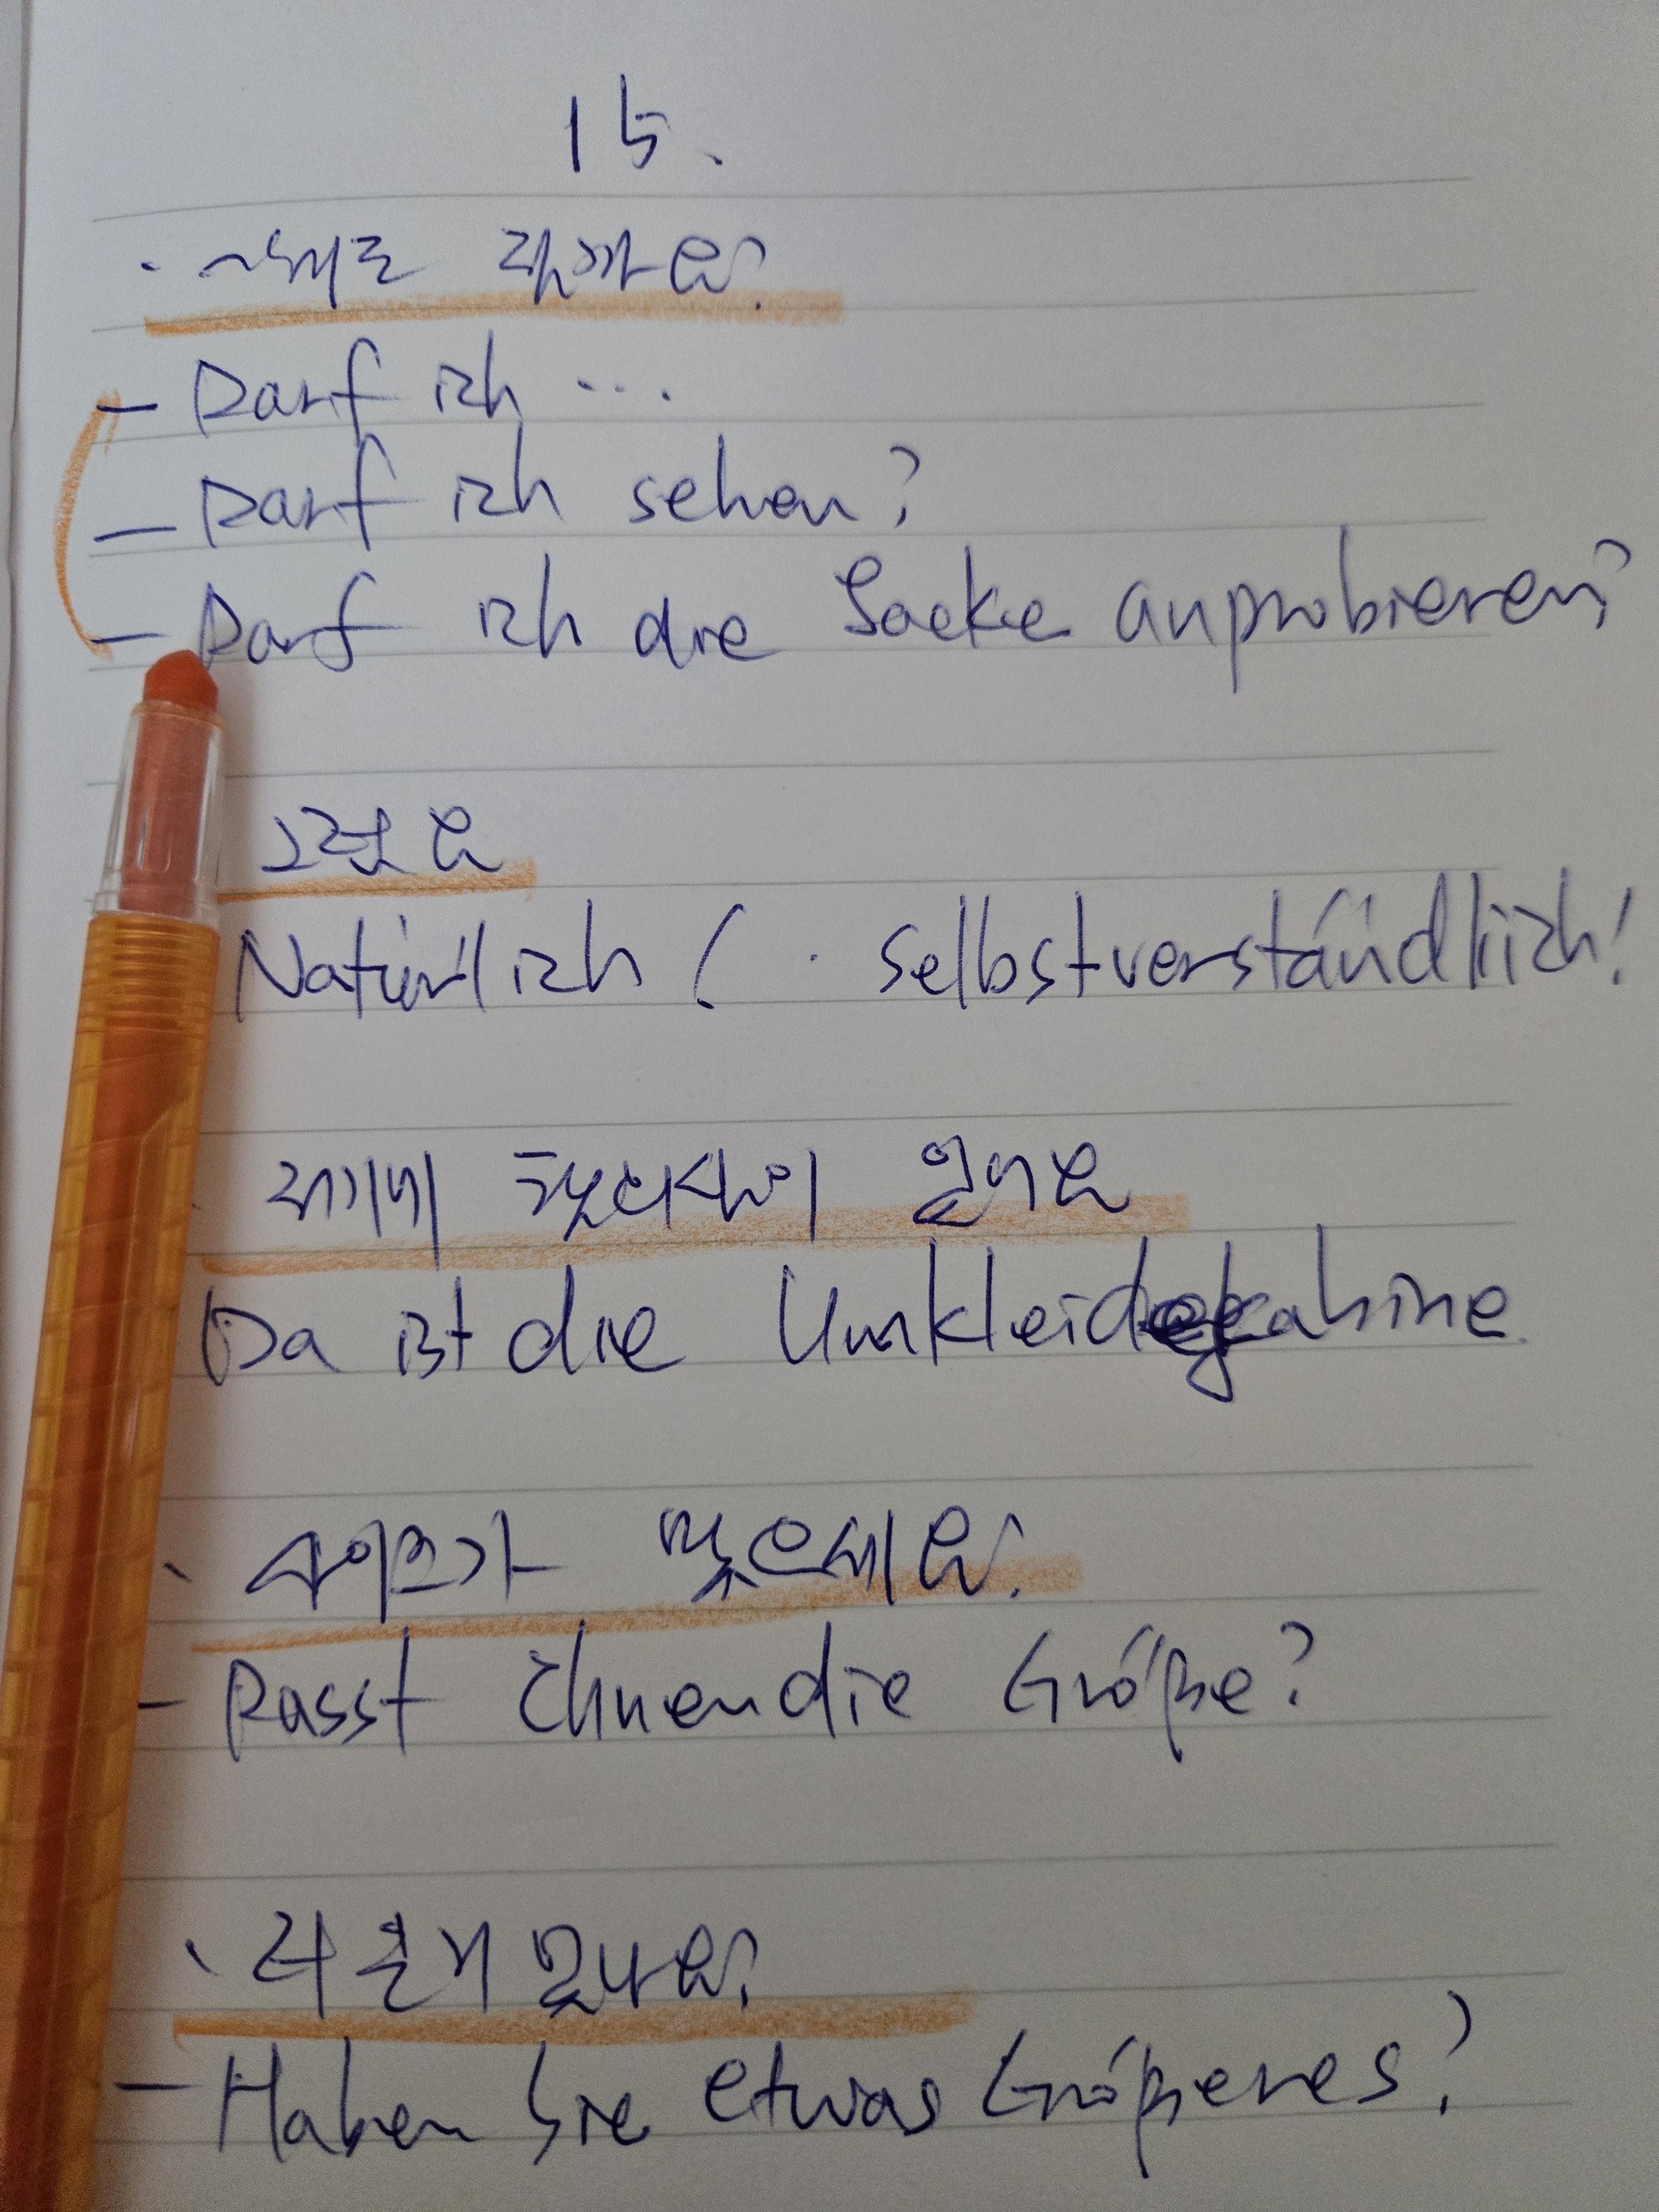 15.
· ~해도 될까요?
- Darf ich ...
- Darf ich sehen?
- Darf ich die Jacke anprobieren?
그럼요
Natürlich ( · selbstverständlich!
저기에 탈의실이 있어요
Da ist die Umkleidekabine
· 사이즈가 맞으세요?
- Passt Ihnen die Größe?
· 더 큰게 있나요?
- Haben Sie etwas Größeres?